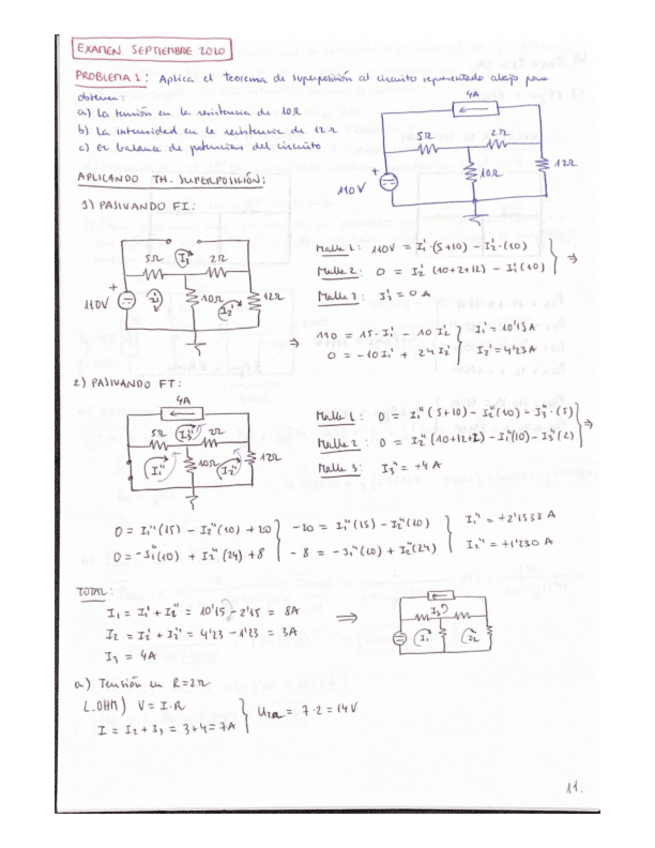 EXAMEN SEPTIEMBRE 2020
PROBLEMA 1: Aplica el teorema de superposición al circuito representado abajo para
obtener:
a) La tensión en la resistencia de 10Ω
b) La intensidad en la resistencia de 12Ω
c) El balance de potencias del circuito
4A
5Ω 2Ω
10Ω 12Ω
+
110V
APLICANDO TH. SUPERPOSICIÓN:
1) PASIVANDO FI:
5Ω I3' 2Ω
+
110V I1' 10Ω I2' 12Ω
Malla 1: 110V = I1'·(5+10) - I2'·(10)
Malla 2: 0 = I2' (10+2+12) - I1'(10) ⇒
Malla 3: I3' = 0 A
⇒ 110 = 15·I1' - 10 I2' } I1' = 10'15A
0 = -10I1' + 24I2' } I2' = 4'23A
2) PASIVANDO FT:
4A
5Ω I3'' 2Ω
I1'' 10Ω I2'' 12Ω
Malla 1: 0 = I1'' (5+10) - I2''(10) - I3''·(5)
Malla 2: 0 = I2'' (10+12+2) - I1''(10) - I3''(2) ⇒
Malla 3: I3'' = +4 A
0 = I1''(15) - I2''(10) + 20 } -20 = I1''(15) - I2''(10) } I1'' = +2'1538 A
0 = -I1''(10) + I2''(24) + 8 } -8 = -I1''(10) + I2''(24) } I2'' = +1'230 A
TOTAL:
I1 = I1' + I1'' = 10'15 - 2'15 = 8A ⇒
I2 = I2' + I2'' = 4'23 - 1'23 = 3A
I3 = 4A
I3
I1 I2
a) Tensión en R=2Ω
L.OHM) V = I·R
I = I2 + I3 = 3+4 = 7A } U2Ω = 7·2 = 14V
11.